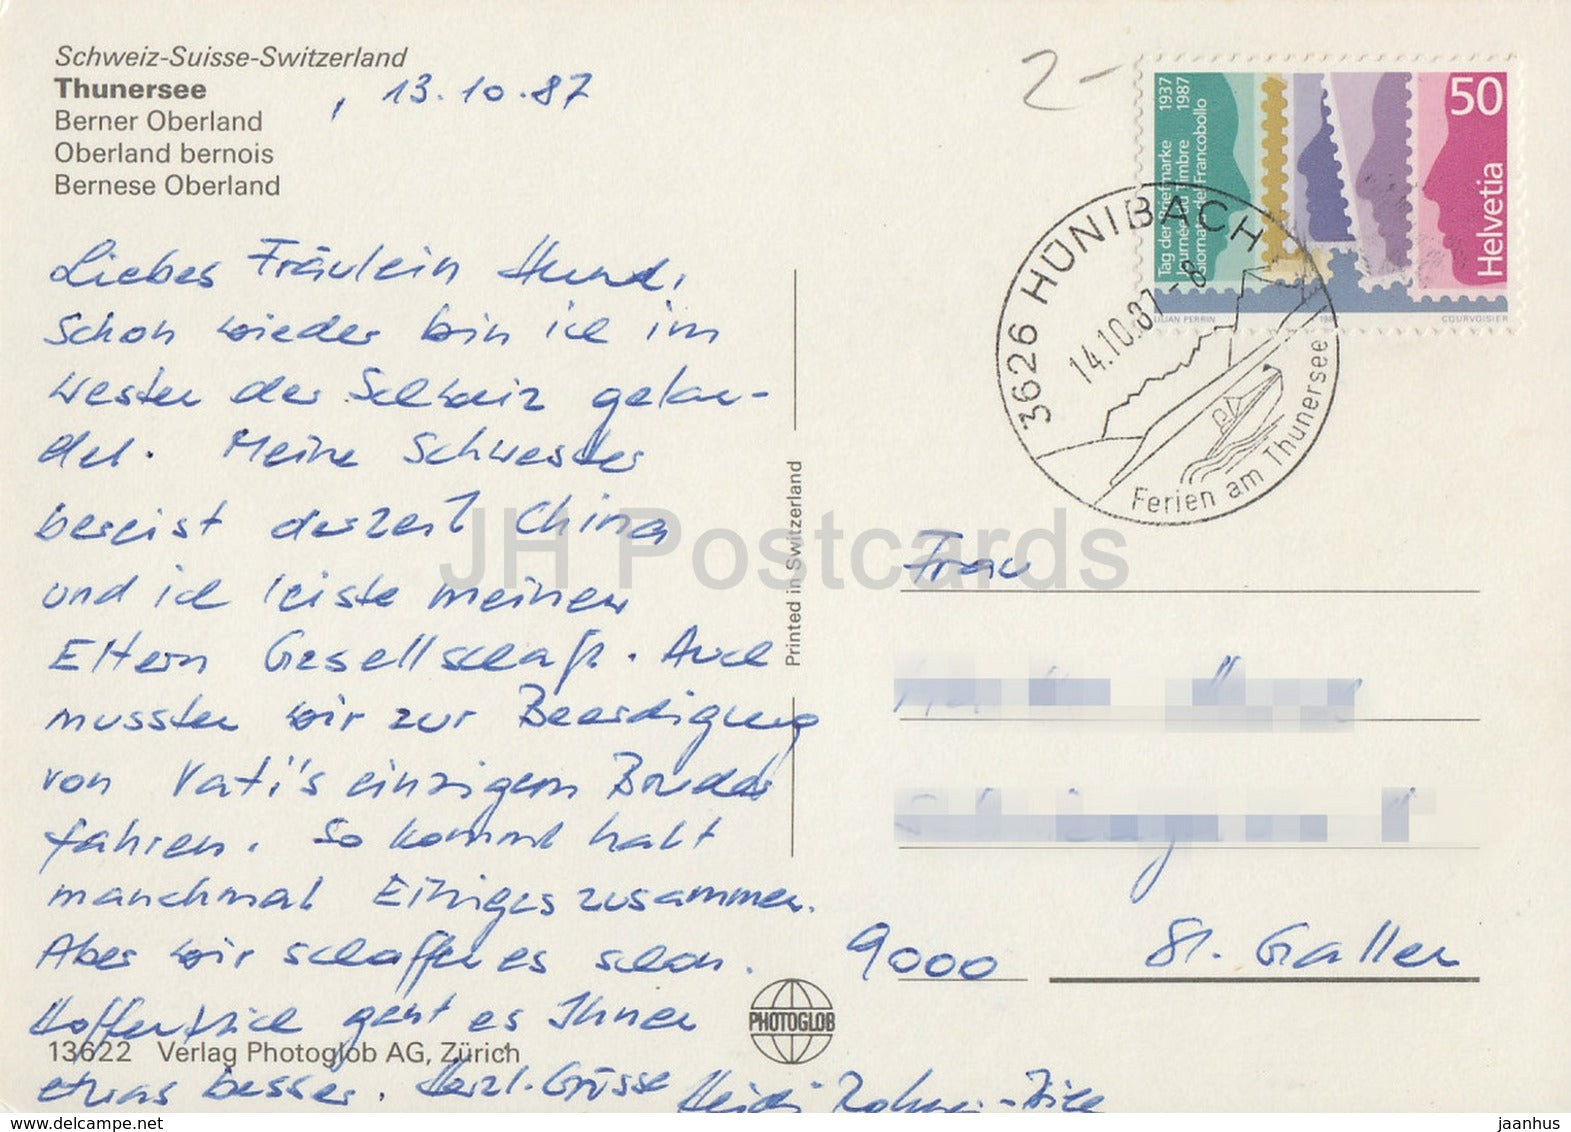 Schweiz-Suisse-Switzerland
Thunersee
, 13.10.87
Berner Oberland
Oberland bernois
Bernese Oberland
Liebes Fräulein
Schon wieder bin ich im
Westen der Schweiz gelan-
det. Meine Schwester
bereist derzeit China
und ich leiste meinen
Eltern Gesellschaft. Auch
mussten wir zur Beerdigung
von Vati's einzigem Bruder
fahren. So kommt halt
manchmal Einiges zusammen.
Aber wir schaffen es schon.
Hoffentlich geht es Ihnen
etwas besser. Herzl. Grüsse
Heidi
13622 Verlag Photoglob AG, Zürich
Printed in Switzerland
PHOTOGLOB
2-
1937
1987
Tag der Briefmarke
Journée du Timbre
Giornata del Francobollo
50
Helvetia
COURVOISIER
3626 HÜNIBACH
14.10.87-8
Ferien am Thunersee
Frau
9000 St. Gallen
JH Postcards
delcampe.net
jaanhus